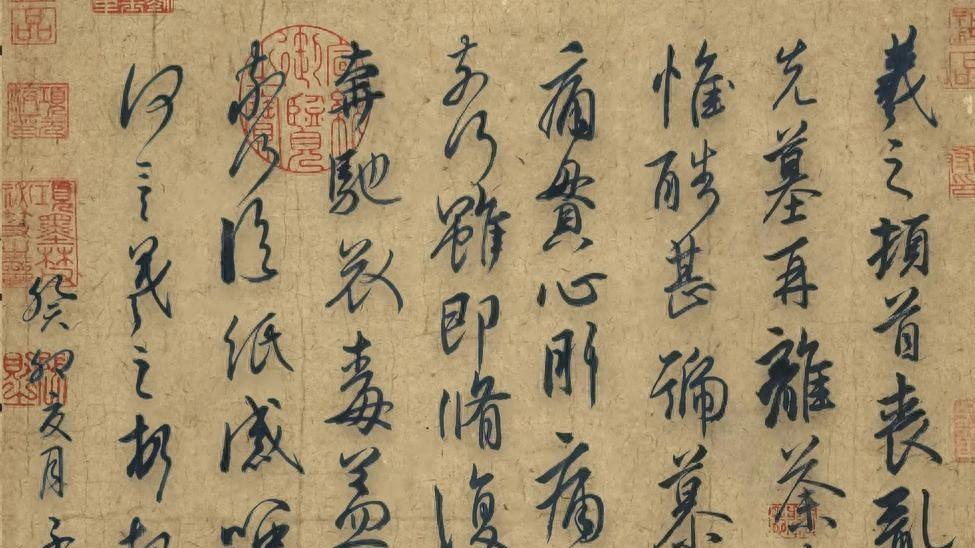 羲之頓首喪亂
先墓再離荼
惟酷甚號慕
痛貫心肝痛
奈何雖即脩復
奔馳哀毒益
奈何臨紙感哽
何言羲之頓首
癸卯夏月